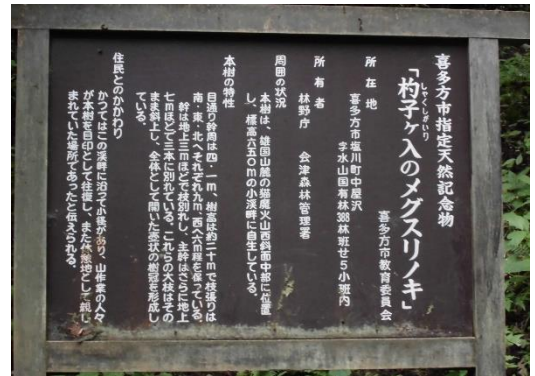 喜多方市指定天然記念物
しゃくしがいり
「杓子ヶ入のメグスリノキ」
喜多方市教育委員会
所在地
喜多方市塩川町中屋沢
字水山国有林388林班せ5小班内
所有者
林野庁 会津森林管理署
周囲の状況
本樹は、雄国山麓の猫魔火山西斜面中部に位置
し、標高六五〇mの小渓畔に自生している。
本樹の特性
目通り幹周は四・一m、樹高は約二十mで枝張りは
南・東・北へそれぞれ九m、西へ六m程を保っている。
幹は地上三mほどで枝別れし、主幹はさらに地上
七mほどで三本に別れている。これらの大枝はその
まま斜上し、全体として開いた壺状の樹冠を形成し
ている。
住民とのかかわり
かつてはこの渓畔に沿って小径があり、山作業の人々
が本樹を目印として往復し、また休憩地として親し
まれていた場所であったと伝えられる。